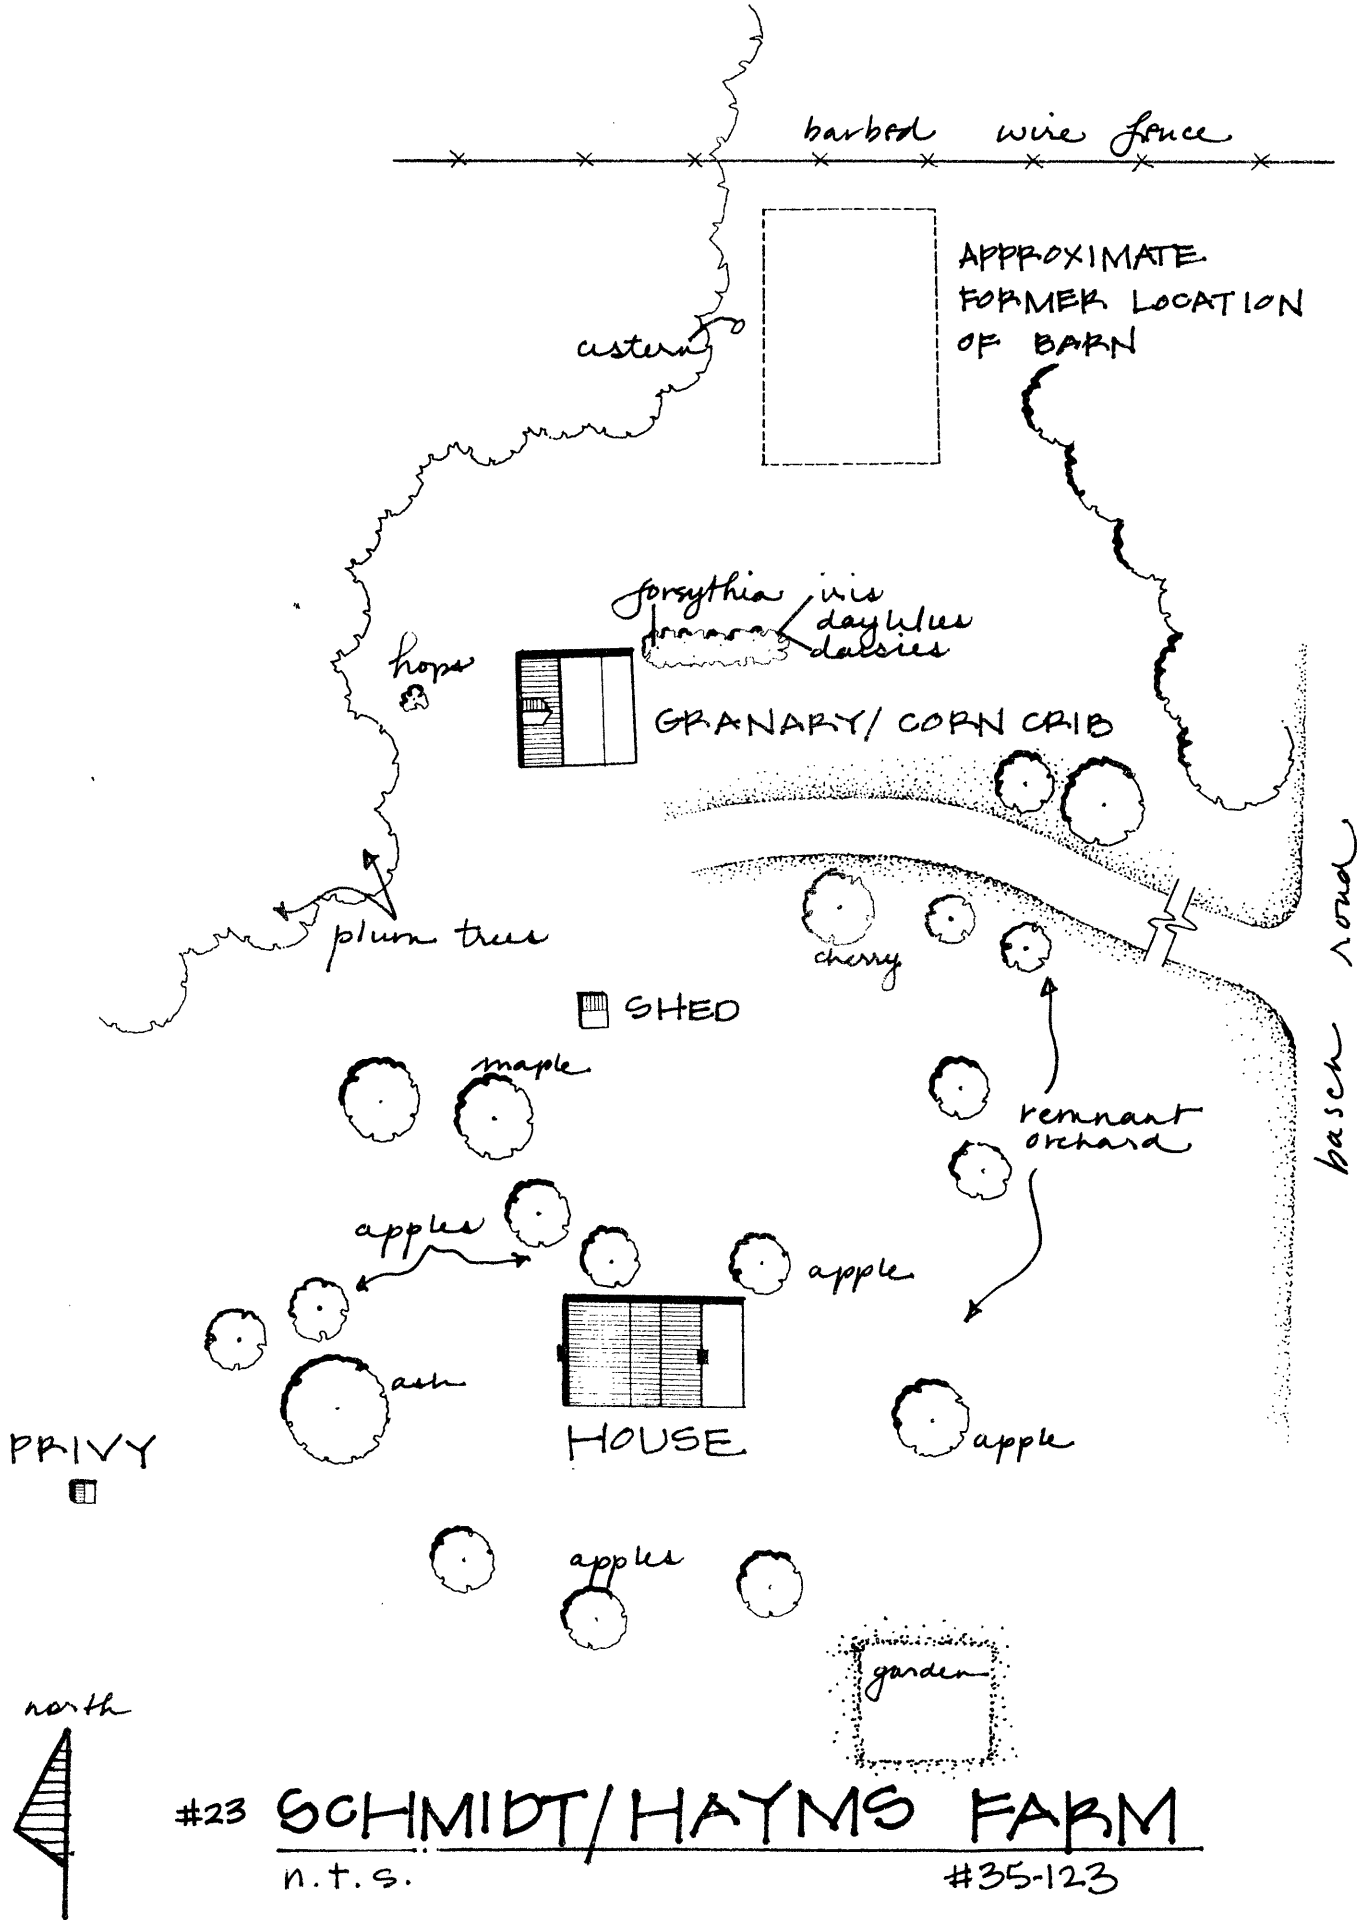 barbed wire fence
APPROXIMATE
FORMER LOCATION
OF BARN
cistern
forsythia
iris
daylilies
daisies
hops
GRANARY/CORN CRIB
plum trees
cherry
basch road
SHED
maple
remnant
orchard
apples
apple
ash
HOUSE
apple
PRIVY
apples
garden
north
#23 SCHMIDT/HAYMS FARM
n.t.s.
#35-123